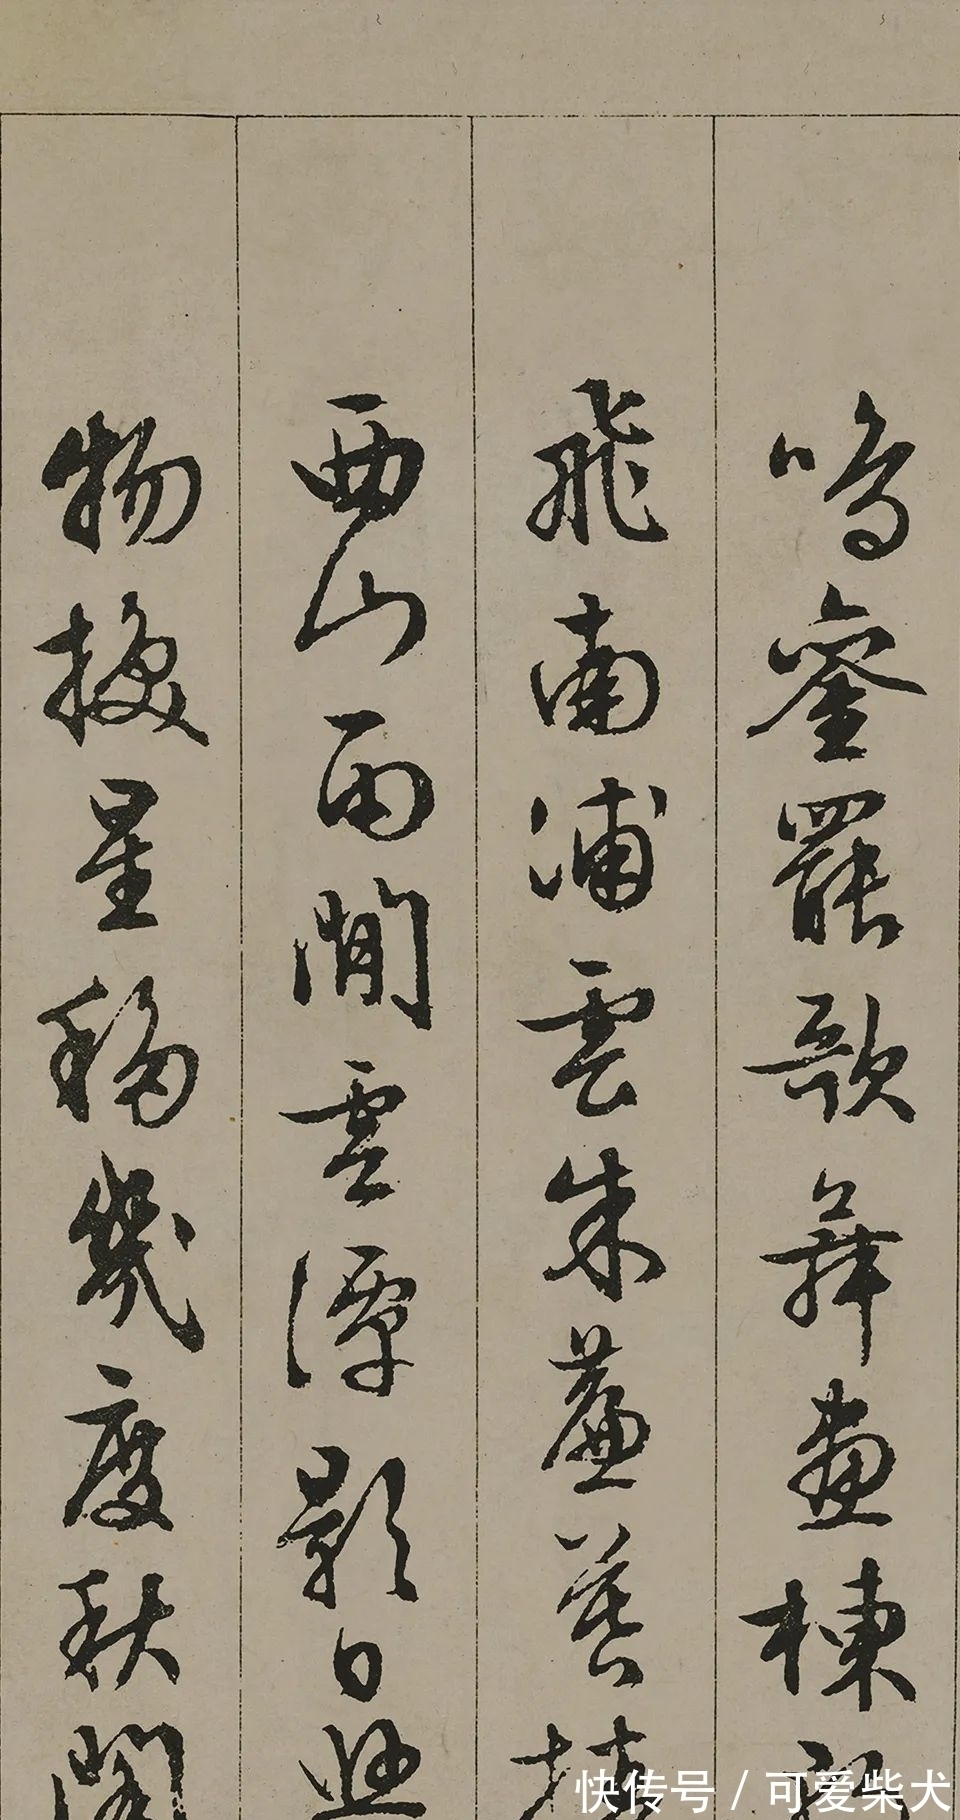 鳴鑾罷歌舞畫棟
飛南浦雲朱簾暮
西山雨閒雲潭影日悠
物換星移幾度秋閣
快传号 / 可爱柴犬